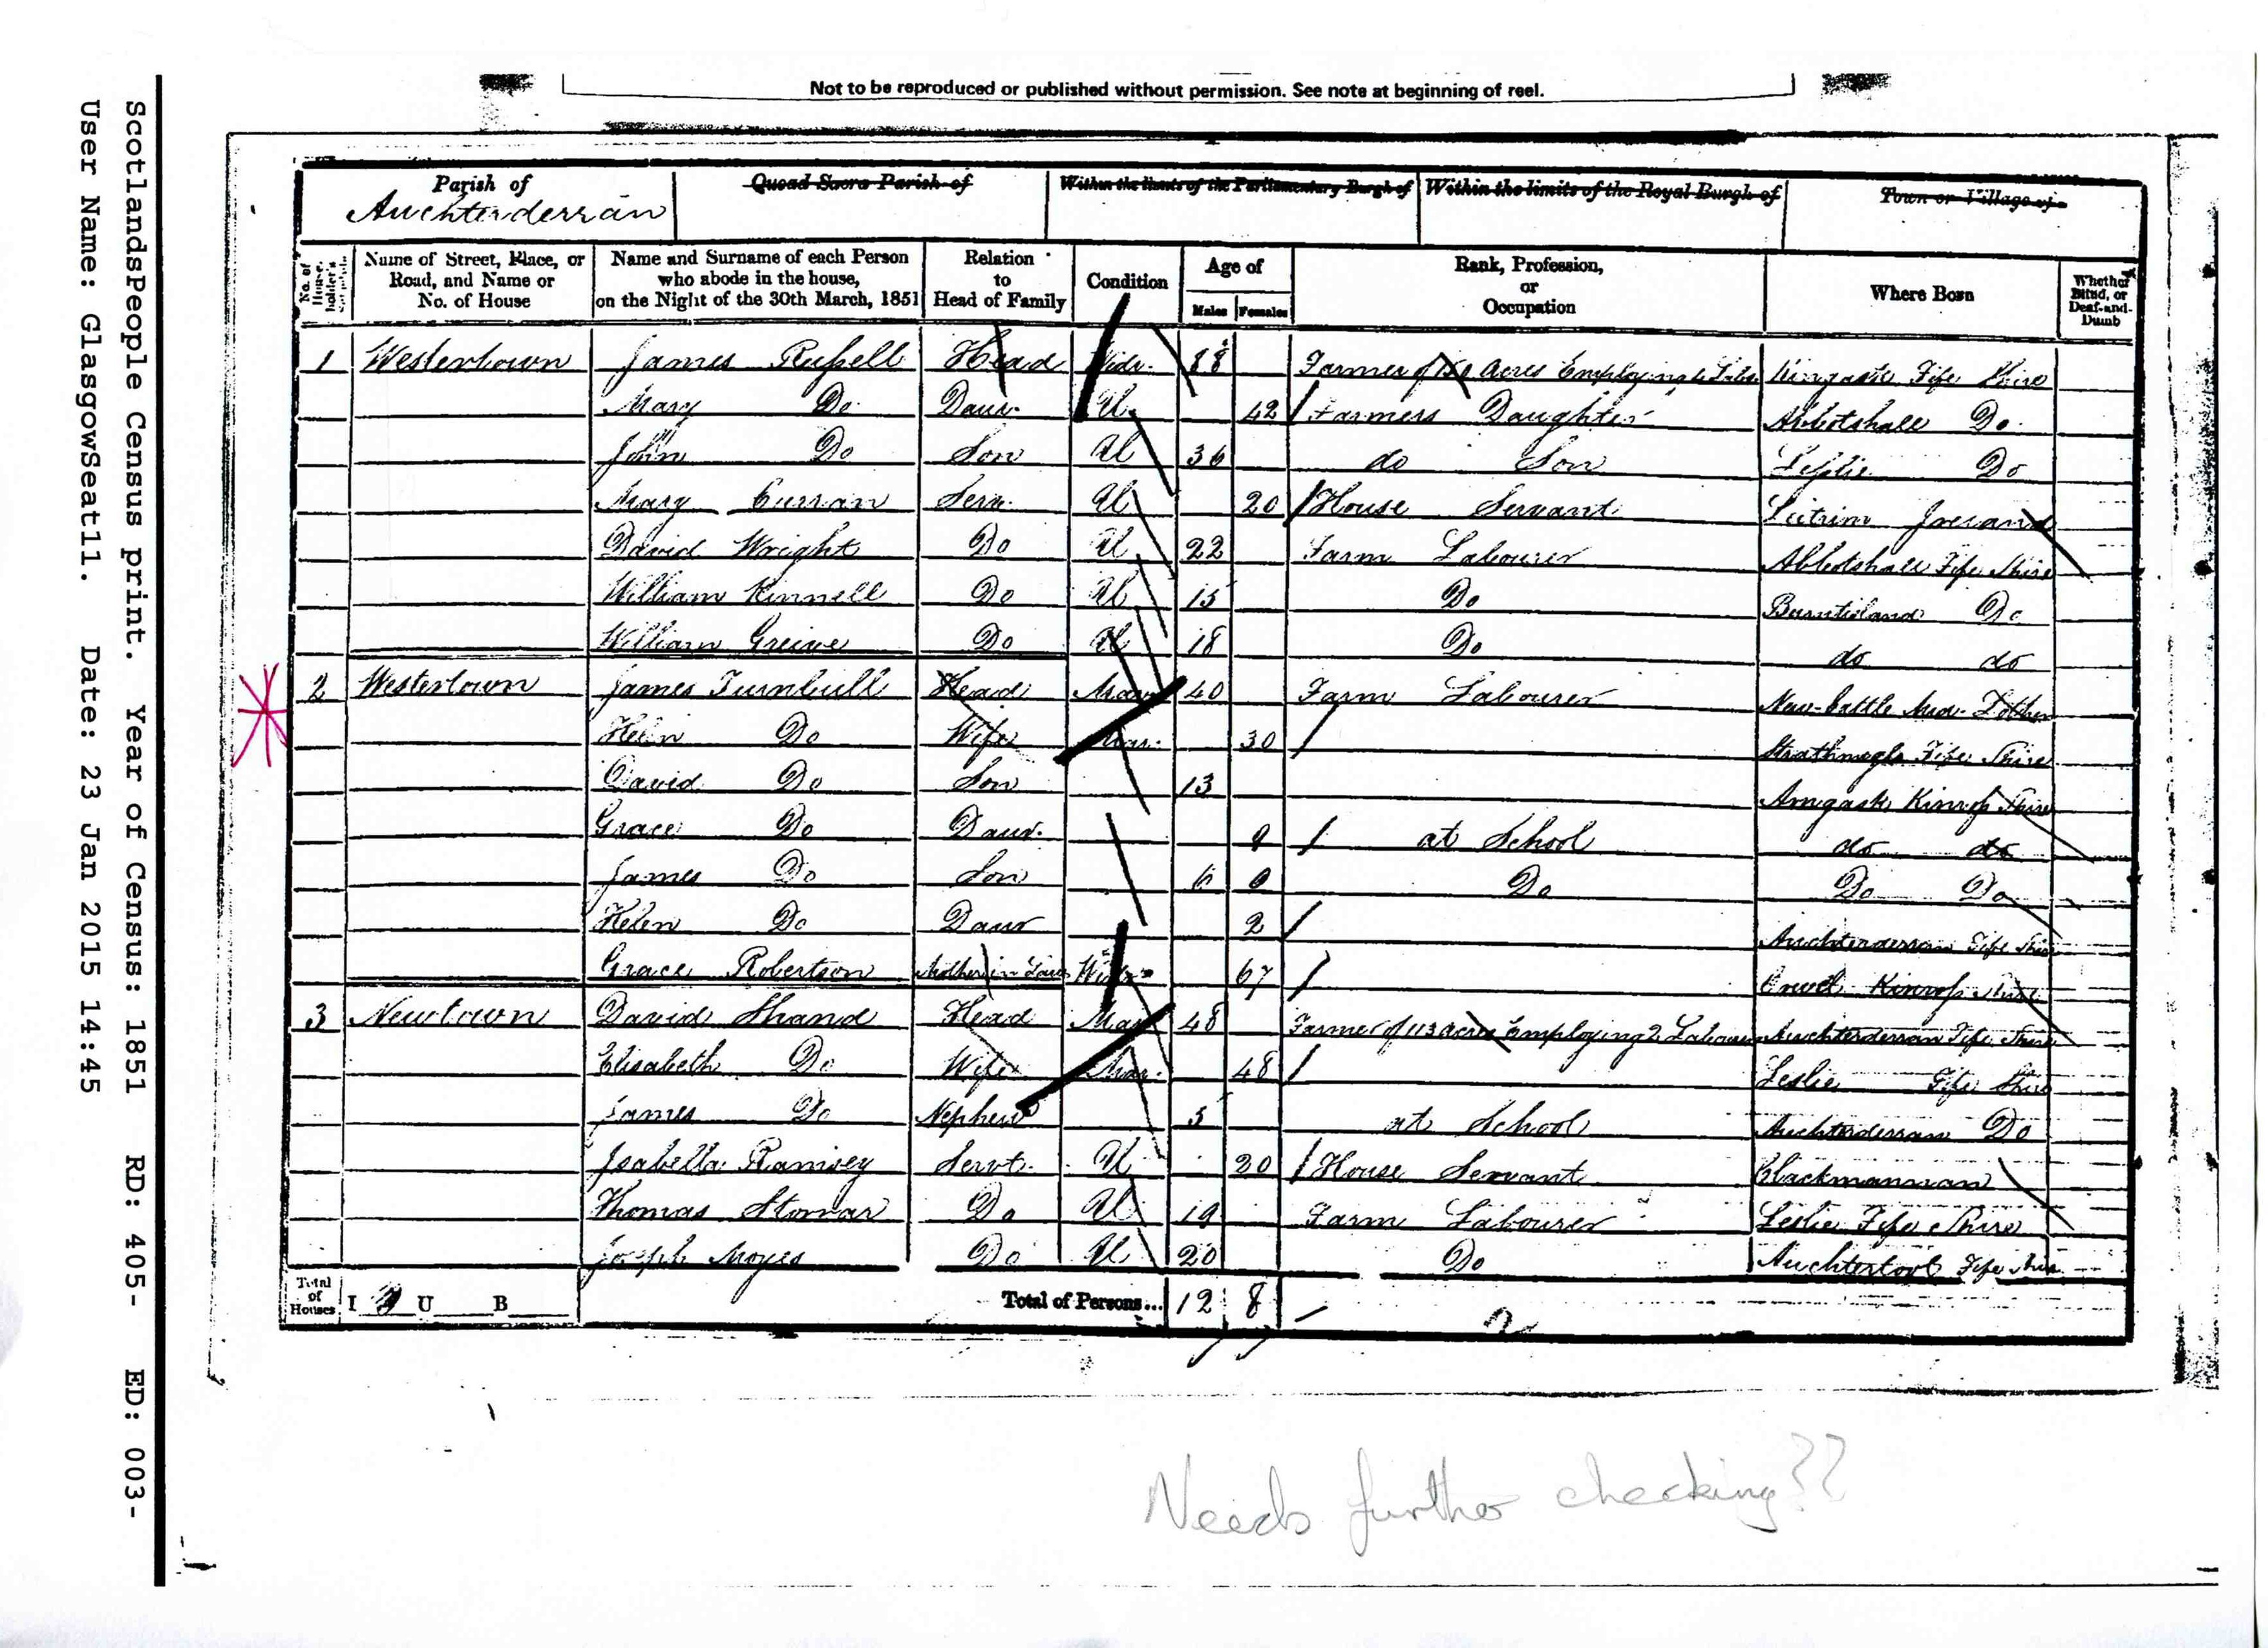 Not to be reproduced or published without permission. See note at beginning of reel.
Parish of Quoad Sacra Parish of Within the limits of the Parliamentary Burgh of Within the limits of the Royal Burgh of Town or Village of
Auchterderran
No. of House-holder's Name of Street, Place, or Road, and Name or No. of House Name and Surname of each Person who abode in the house, on the Night of the 30th March, 1851 Relation to Head of Family Condition Age of Males Females Rank, Profession, or Occupation Where Born Whether Blind, or Deaf-and-Dumb
1 Westertown James Russell Head Widr. 88 Farmer of Acres Employing Fife Shire
Mary Do. Daur. U. 42 Farmers Daughter Abbotshall Do.
John Do Son U 36 do Son Leslie Do
Mary Curran Serv. U 20 House Servant Leitrim Ireland
David Wright Do U 22 Farm Labourer Abbotshall Fife Shire
William Kinnell Do U 15 Do Burntisland Do
William Greive Do U 18 Do do do
2 Westertown James Turnbull Head Mar 40 Farm Labourer New-battle Mid-Lothian
Helen Do Wife Mar. 30 Strathmiglo Fife Shire
David Do Son 13 Arngask Kinross Shire
Grace Do Daur. 9 at School do do
James Do Son 6 Do Do Do
Helen Do Daur 2 Auchterderran Fife Shire
Grace Robertson Mother in Law Widr 67 Orwel Kinross Shire
3 Newtown David Shand Head Mar 48 Farmer of 113 acres Employing 2 Labourers Auchterderran Fife Shire
Elisabeth Do Wife Mar. 48 Leslie Fife Shire
James Do Nephew 5 at School Auchterderran Do
Isabella Ramsey Servt. U 20 House Servant Clackmannan
Thomas Stonar Do U 19 Farm Labourer Leslie Fife Shire
Joseph Moyes Do U 20 Do Auchtertool Fife Shire
Total of Houses I 3 U B Total of Persons... 12 8
2
Needs further checking??
ScotlandsPeople Census print. Year of Census: 1851 RD: 405- ED: 003-
User Name: GlasgowSeat11. Date: 23 Jan 2015 14:45